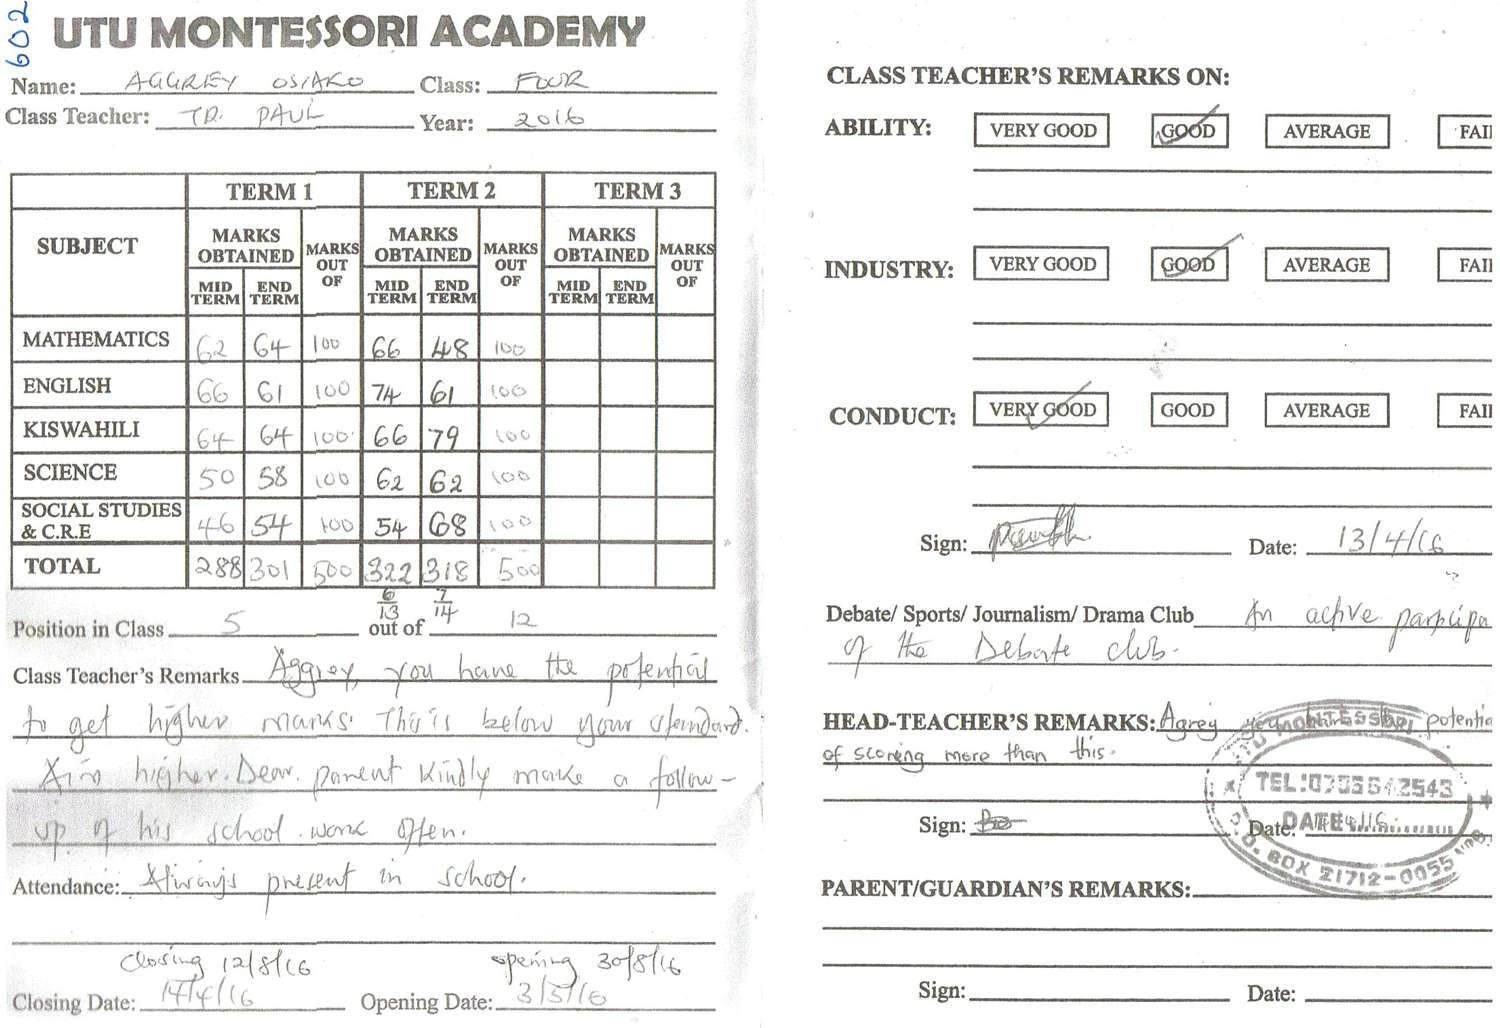 602
UTU MONTESSORI ACADEMY
Name: AGGREY OSIAKO Class: FOUR
Class Teacher: TR. PAUL Year: 2016
TERM 1 TERM 2 TERM 3
SUBJECT MARKS OBTAINED MARKS OUT OF MARKS OBTAINED MARKS OUT OF MARKS OBTAINED MARKS OUT OF
MID TERM END TERM MID TERM END TERM MID TERM END TERM
MATHEMATICS 62 64 100 66 48 100
ENGLISH 66 61 100 74 61 100
KISWAHILI 64 64 100 66 79 100
SCIENCE 50 58 100 62 62 100
SOCIAL STUDIES & C.R.E 46 54 100 54 68 100
TOTAL 288 301 500 322 318 500
6/13 7/14
Position in Class 5 out of 12
Class Teacher's Remarks Aggrey, you have the potential
to get higher marks. This is below your standard.
Aim higher. Dear parent kindly make a follow-
up of his school work often.
Attendance: Always present in school.
Closing 12/8/16 opening 30/8/16
Closing Date: 14/4/16 Opening Date: 3/5/16
CLASS TEACHER'S REMARKS ON:
ABILITY: VERY GOOD GOOD AVERAGE FAI
INDUSTRY: VERY GOOD GOOD AVERAGE FAI
CONDUCT: VERY GOOD GOOD AVERAGE FAI
Sign: Date: 13/4/16
Debate/ Sports/ Journalism/ Drama Club An active participa
of the Debate club.
HEAD-TEACHER'S REMARKS: Agrey potentia
of scoring more than this.
UTU MONTESSORI
TEL:0735642543
Sign: Date: DATE
P.O. BOX 21712-0055
PARENT/GUARDIAN'S REMARKS:
Sign: Date: